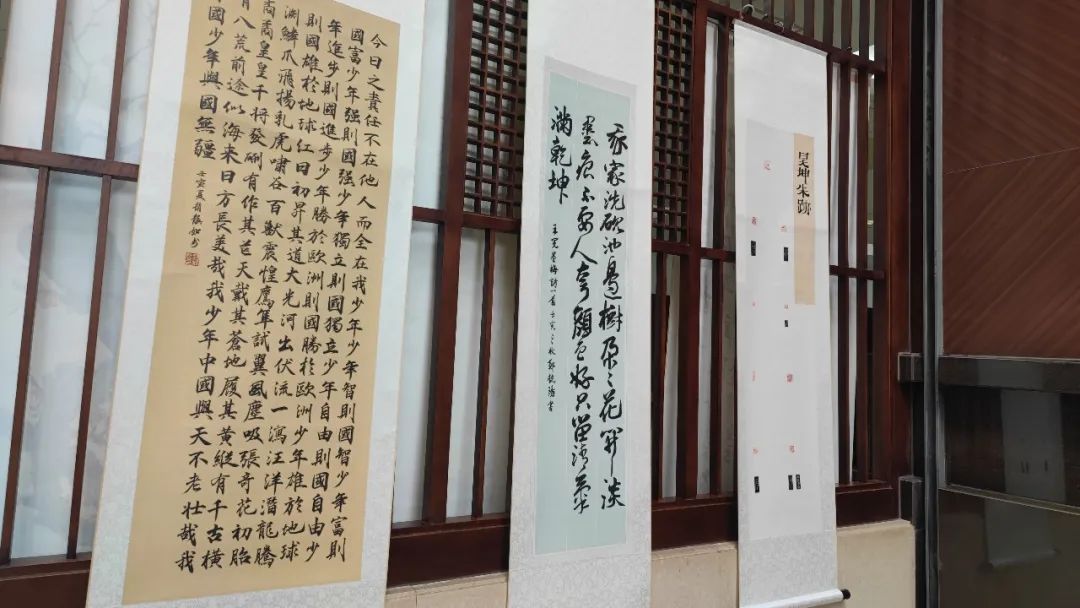 今日之責任不在他人而全在我少年少年智則國智少年富則
國富少年强則國强少年獨立則國獨立少年自由則國自由少
年進步則國進步少年勝於歐洲則國勝於歐洲少年雄於地球
則國雄於地球紅日初昇其道大光河出伏流一瀉汪洋潛龍騰
淵鱗爪飛揚乳虎嘯谷百獸震惶鷹隼試翼風塵吸張奇花初胎
矞矞皇皇干將發硎有作其芒天戴其蒼地履其黃縱有千古橫
有八荒前途似海來日方長美哉我少年中國與天不老壯哉我
國少年與國無疆
壬寅夏書
我家洗硯池邊樹朶々花開淡
墨痕不要人夸顏色好只留清氣
滿乾坤
王冕墨梅詩一首壬寅之秋書
吴坤朱跡